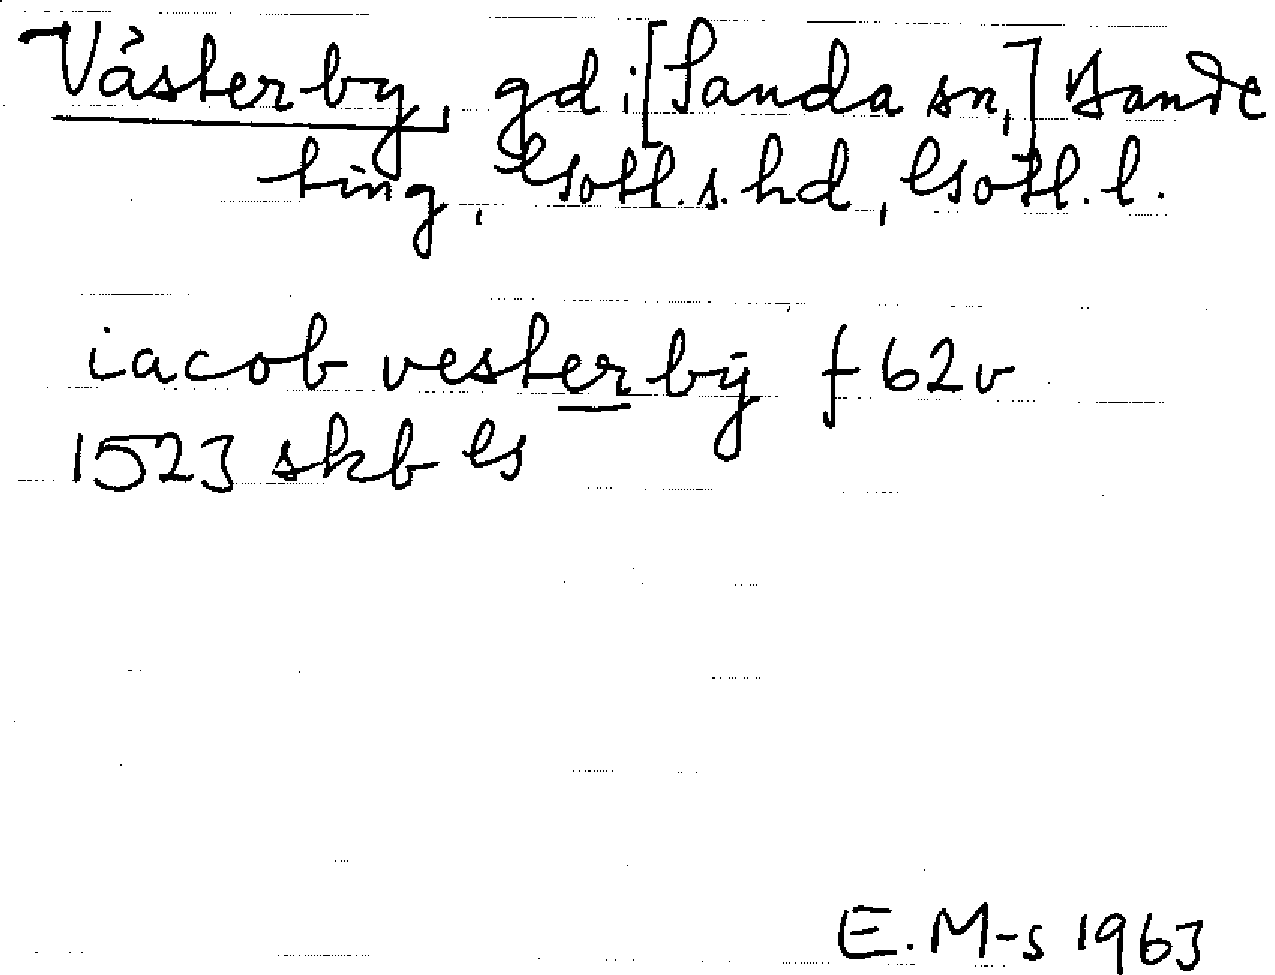 Västerby, gd i [Sanda sn,] Bande
ting, Gotl. s. hd, Gotl. l.
iacob vesterbÿ f 62v
1523 skb G
E. M-s 1963